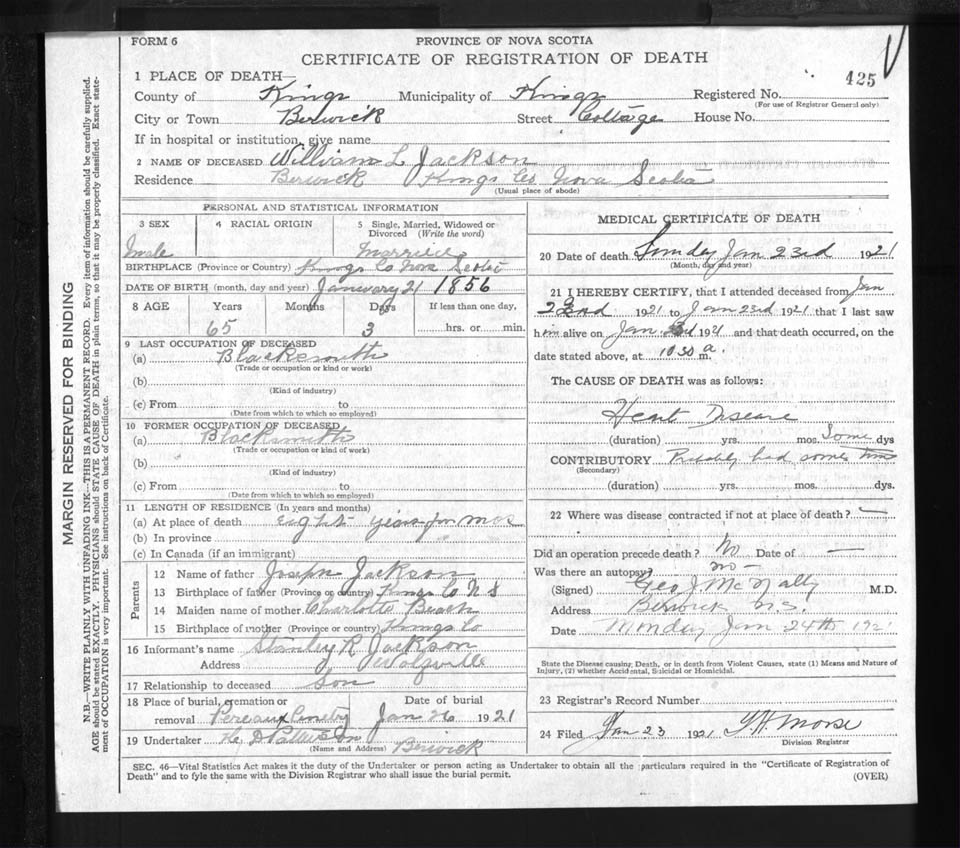 FORM 6
PROVINCE OF NOVA SCOTIA
CERTIFICATE OF REGISTRATION OF DEATH
425
1 PLACE OF DEATH—
County of Kings Municipality of Kings Registered No.
(For use of Registrar General only)
City or Town Berwick Street Cottage House No.
If in hospital or institution, give name
2 NAME OF DECEASED William L Jackson
Residence Berwick Kings Co Nova Scotia
(Usual place of abode)
PERSONAL AND STATISTICAL INFORMATION
3 SEX 4 RACIAL ORIGIN 5 Single, Married, Widowed or Divorced (Write the word)
male Married
BIRTHPLACE (Province or Country) Kings Co Nova Scotia
DATE OF BIRTH (month, day and year) January 21 1856
8 AGE Years Months Days If less than one day,
65 3 hrs. or min.
9 LAST OCCUPATION OF DECEASED
(a) Blacksmith
(Trade or occupation or kind or work)
(b)
(Kind of industry)
(c) From to
(Date from which to which so employed)
10 FORMER OCCUPATION OF DECEASED
(a) Blacksmith
(Trade or occupation or kind of work)
(b)
(Kind of industry)
(c) From to
(Date from which to which so employed)
11 LENGTH OF RESIDENCE (In years and months)
(a) At place of death eight years mos
(b) In province
(c) In Canada (if an immigrant)
Parents
12 Name of father Joseph Jackson
13 Birthplace of father (Province or country) Kings Co N S
14 Maiden name of mother Charlotte Beach
15 Birthplace of mother (Province or country) Kings Co
16 Informant's name Stanley R Jackson
Address Wolfville
17 Relationship to deceased Son
18 Place of burial, cremation or removal Date of burial
Pereaux Jan 26 1921
19 Undertaker Berwick
(Name and Address)
MEDICAL CERTIFICATE OF DEATH
20 Date of death Sunday Jan 23rd 1921
(Month, day and year)
21 I HEREBY CERTIFY, that I attended deceased from Jan
22nd 1921 to Jan 23rd 1921 that I last saw
him alive on Jan 1921 and that death occurred, on the
date stated above, at 10 30 a m.
The CAUSE OF DEATH was as follows:
Heart Disease
(duration) yrs. mos. Some dys
CONTRIBUTORY Probably had some time
(Secondary)
(duration) yrs. mos. dys.
22 Where was disease contracted if not at place of death? —
Did an operation precede death? No Date of —
Was there an autopsy? no —
(Signed) Geo J McNally M.D.
Address Berwick N.S.
Date Monday Jan 24th 1921
State the Disease causing Death, or in death from Violent Causes, state (1) Means and Nature of
Injury, (2) whether Accidental, Suicidal or Homicidal.
23 Registrar's Record Number
24 Filed Jan 23 1921 Morse
Division Registrar
SEC. 46—Vital Statistics Act makes it the duty of the Undertaker or person acting as Undertaker to obtain all the particulars required in the "Certificate of Registration of
Death" and to fyle the same with the Division Registrar who shall issue the burial permit.
(OVER)
MARGIN RESERVED FOR BINDING
N.B.—WRITE PLAINLY WITH UNFADING INK—THIS IS A PERMANENT RECORD. Every item of information should be carefully supplied.
AGE should be stated EXACTLY. PHYSICIANS should STATE CAUSE OF DEATH in plain terms, so that it may be properly classified. Exact state-
ment of OCCUPATION is very important. See instructions on back of Certificate.